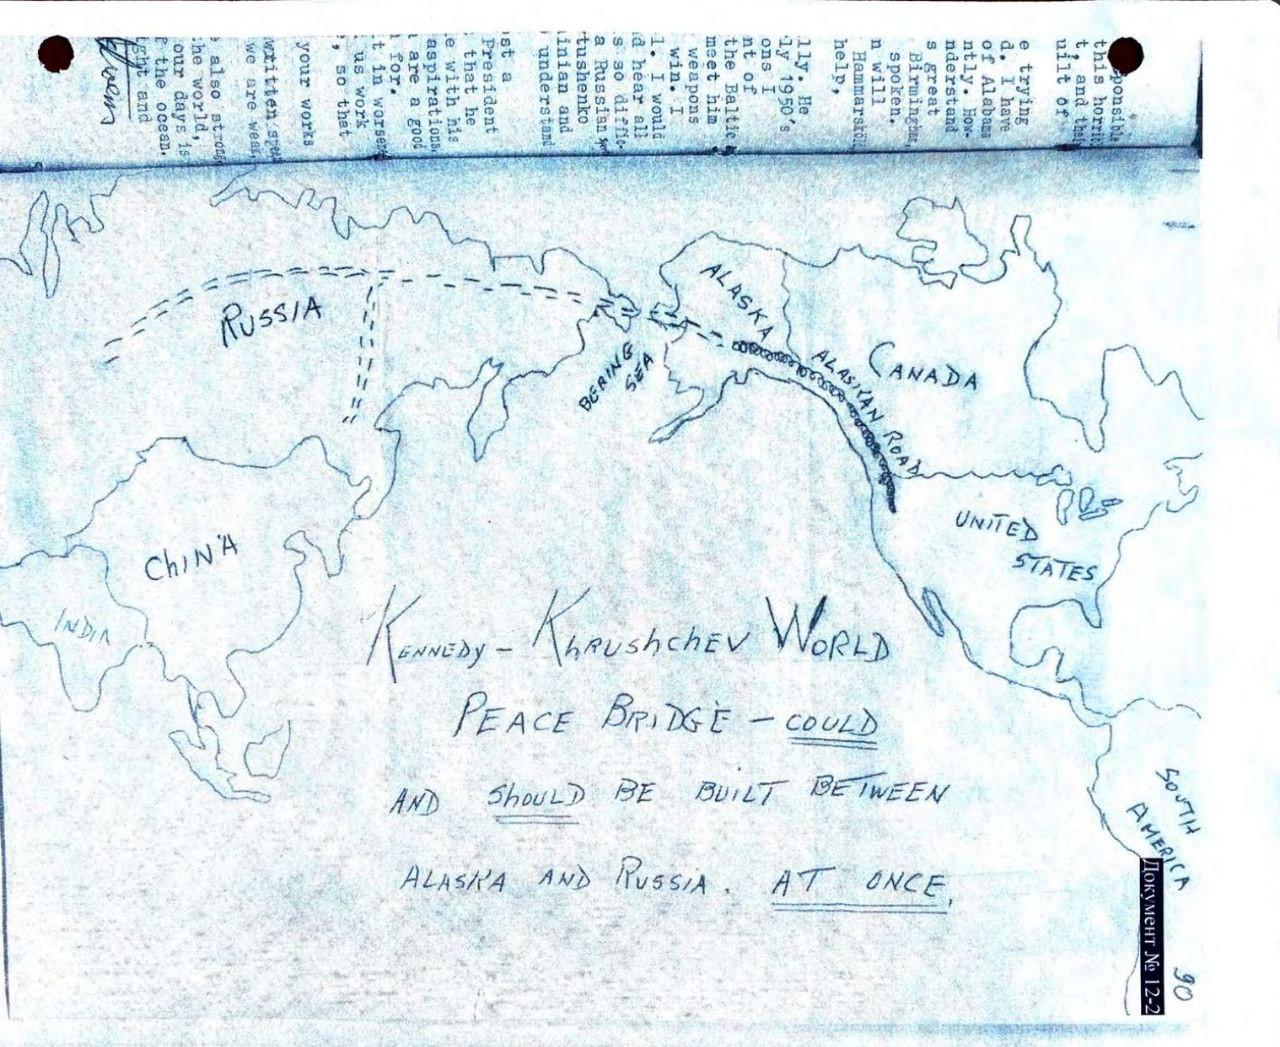 ponsible
this horri
t, and the
uilt of
e trying
d. I have
of Alabama
ntly. How-
nderstand
s great
Birmingham,
spoken.
n will
Hammarskj
help,
lly. He
ly 1950's
ons I
nt of
the Baltic
meet him
weapons
win. I
l. I would
d hear all
s so diffic-
a Russian
tushenko
inian and
understand
st a
President
that he
e with his
aspirations
are a good
for.
t in worsen
us work
, so that
your works
written
we are weak
also strong
he world,
our days is
f the ocean.
ght and
RUSSIA
ALASKA
BERING
SEA
ALASKAN ROAD
CANADA
UNITED
STATES
CHINA
INDIA
KENNEDY - KHRUSHCHEV WORLD
PEACE BRIDGE - COULD
AND SHOULD BE BUILT BETWEEN
ALASKA AND RUSSIA. AT ONCE.
SOUTH
AMERICA
Документ № 12-2
90